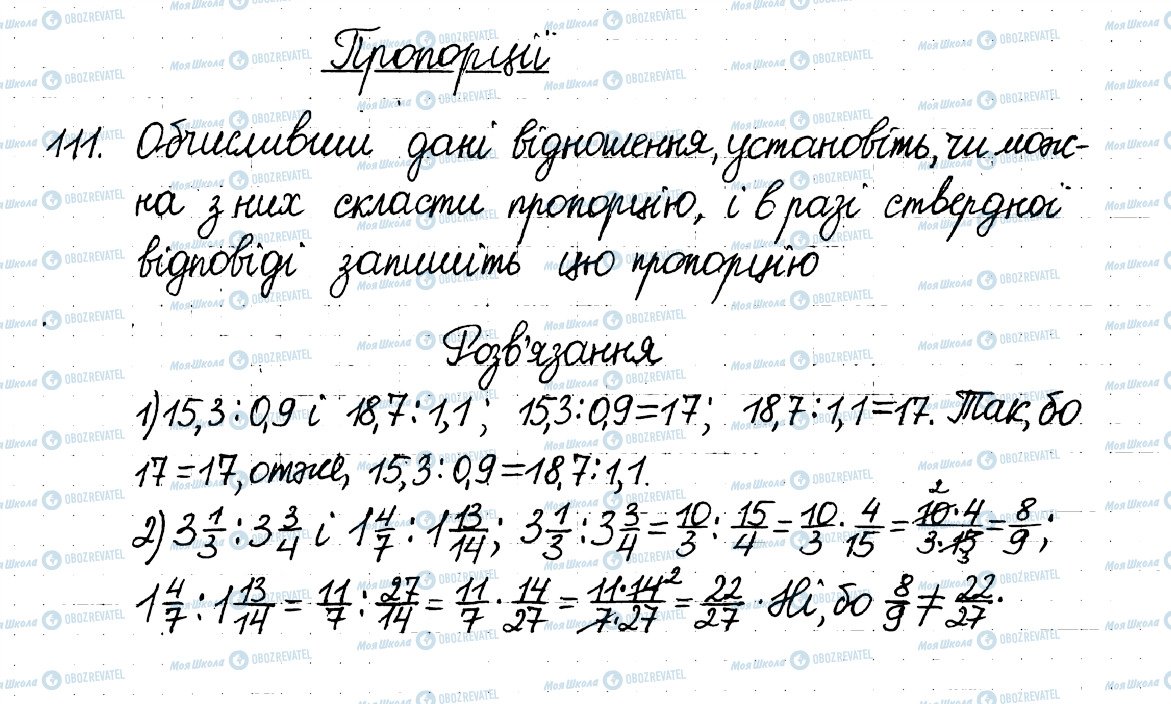 Пропорції
111. Обчисливши дані відношення, установіть, чи мож-
на з них скласти пропорцію, і в разі ствердної
відповіді запишіть цю пропорцію
Розв'язання
1) 15,3 : 0,9 і 18,7 : 1,1; 15,3 : 0,9 = 17; 18,7 : 1,1 = 17. Так, бо
17 = 17, отже, 15,3 : 0,9 = 18,7 : 1,1.
2) 3 1/3 : 3 3/4 і 1 4/7 : 1 13/14; 3 1/3 : 3 3/4 = 10/3 : 15/4 = 10/3 · 4/15 = 10·4/3·15 = 8/9;
1 4/7 : 1 13/14 = 11/7 : 27/14 = 11/7 · 14/27 = 11·14/7·27 = 22/27. Ні, бо 8/9 ≠ 22/27.